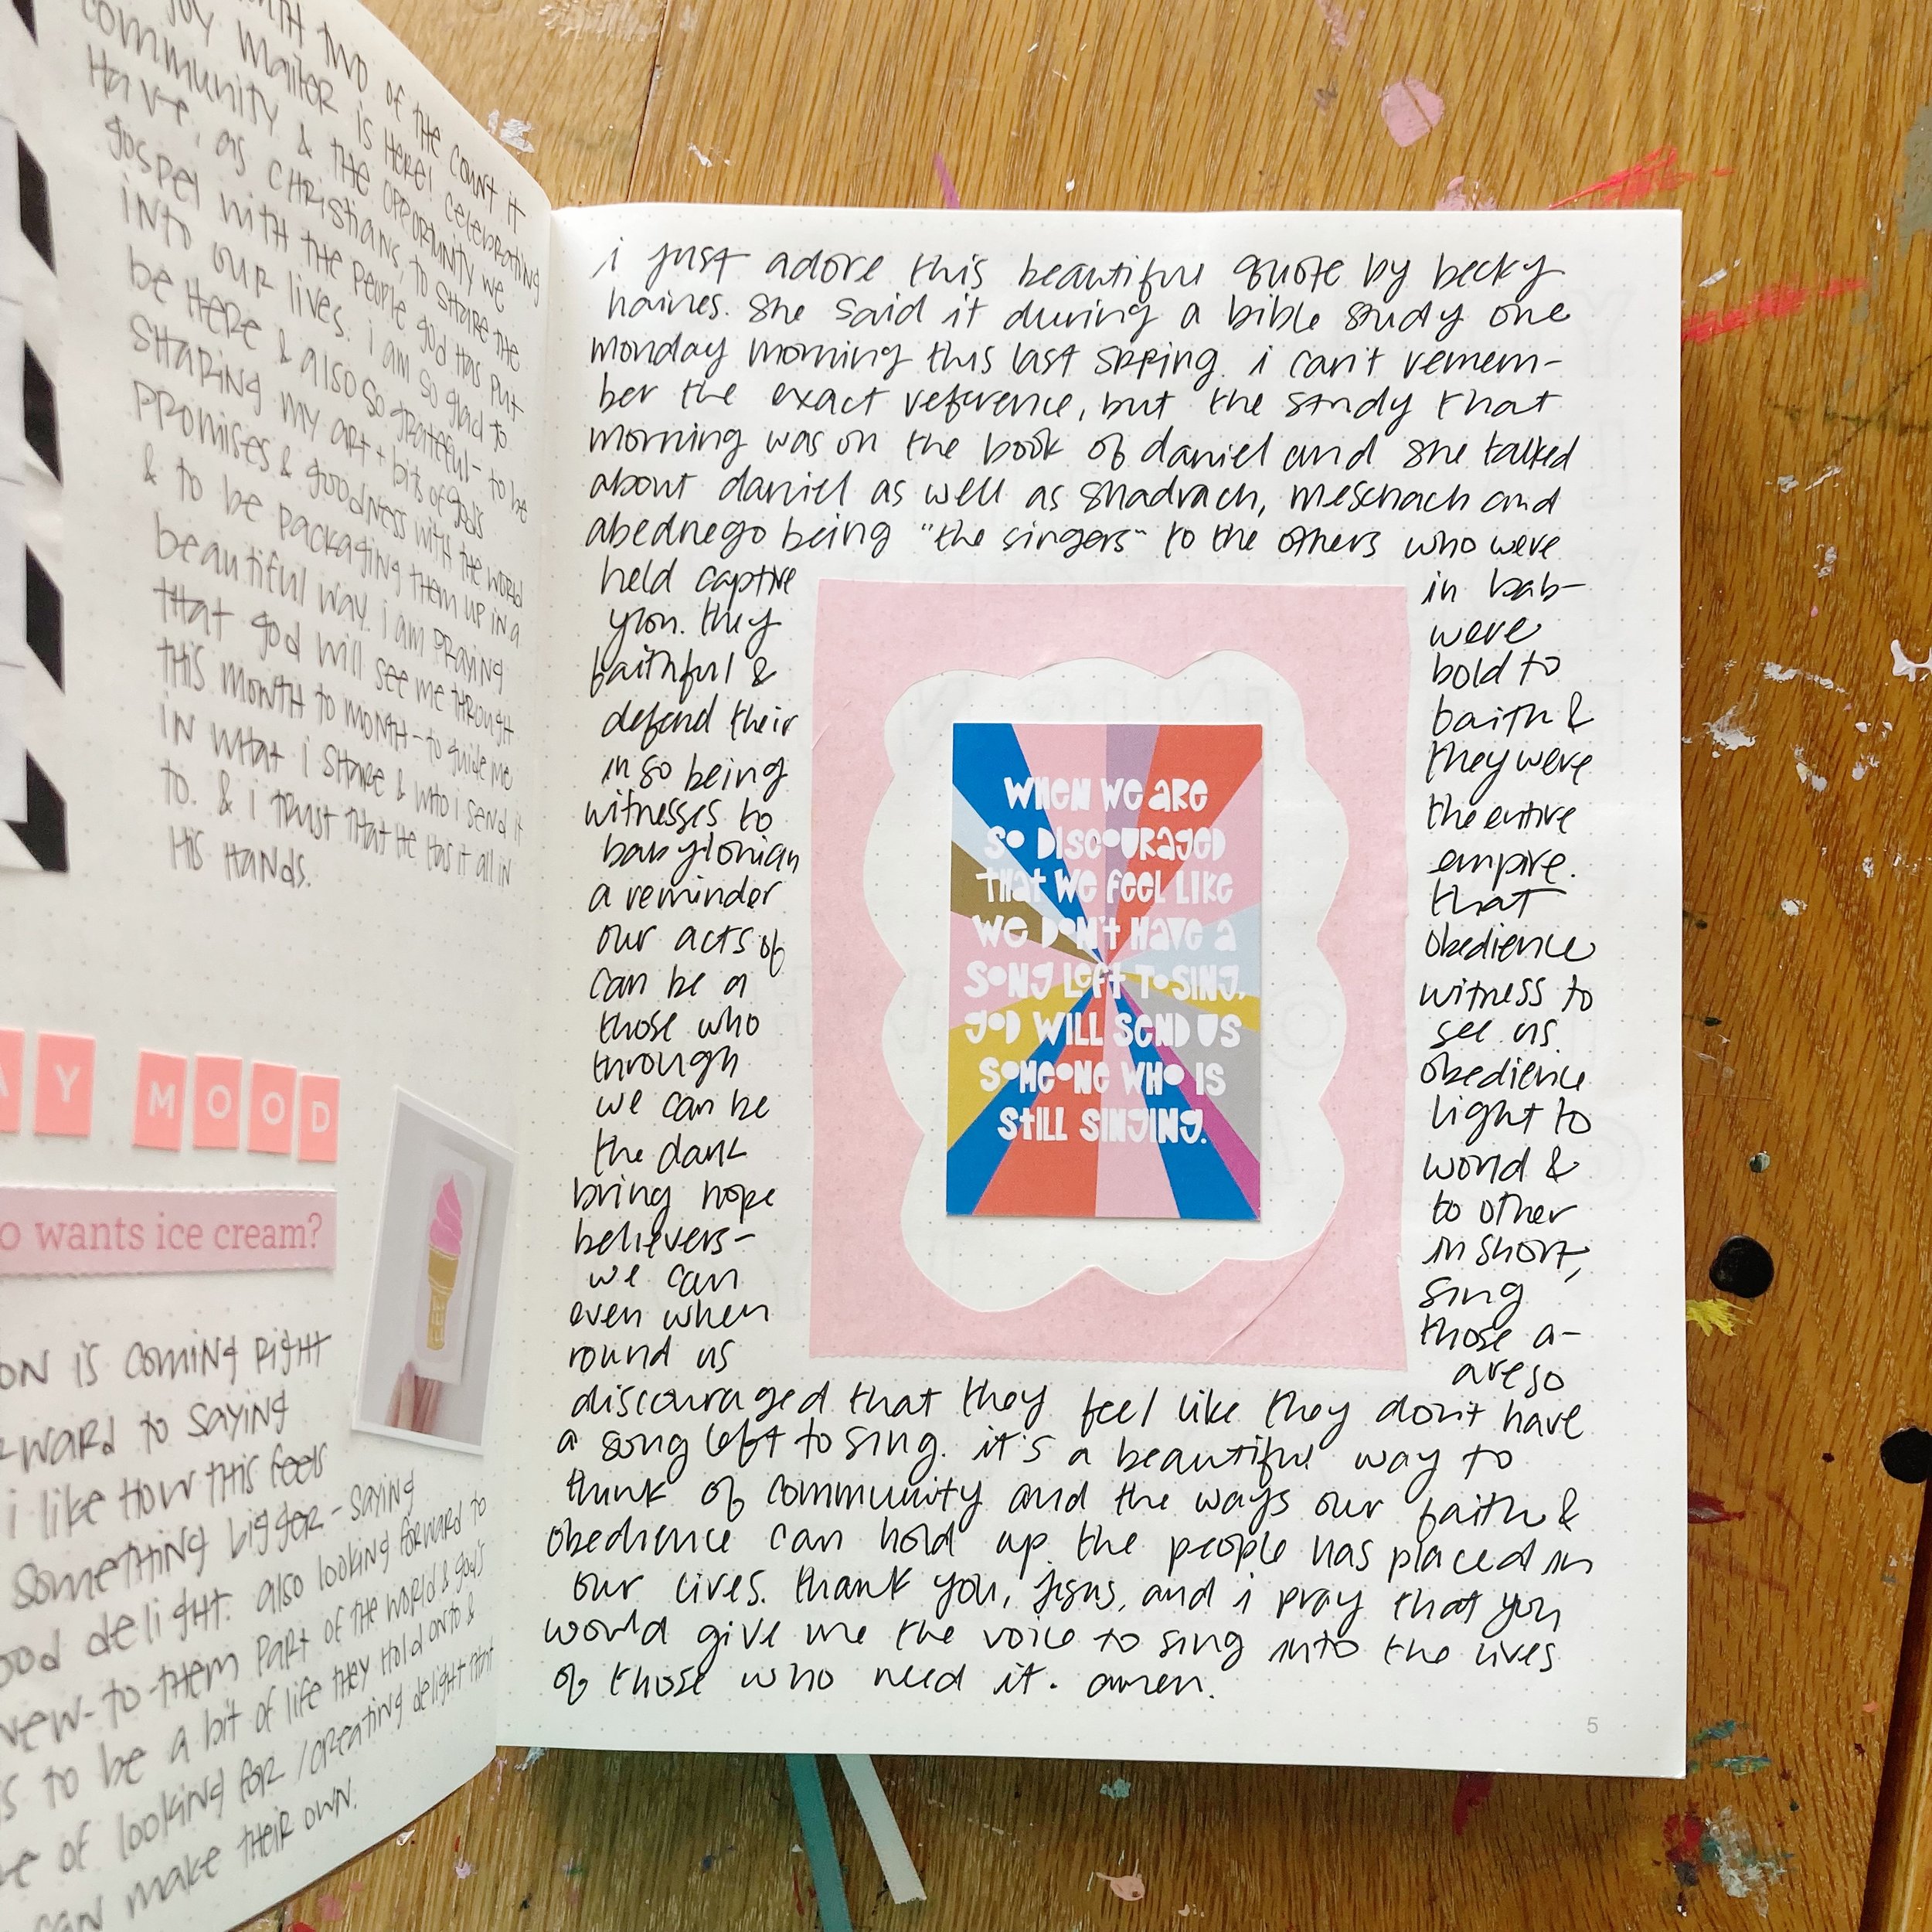 NTH TWO OF THE COUNT IT
JOY MAILER IS HERE! CELEBRATING
COMMUNITY & THE OPPORTUNITY WE
HAVE, AS CHRISTIANS, TO SHARE THE
GOSPEL WITH THE PEOPLE GOD HAS PUT
INTO OUR LIVES. i AM SO GLAD TO
BE HERE & ALSO SO GRATEFUL - TO BE
SHARING MY ART + BITS OF GOD'S
PROMISES & GOODNESS WITH THE WORLD
& TO BE PACKAGING THEM UP IN A
BEAUTIFUL WAY. i AM PRAYING
THAT GOD WILL SEE ME THROUGH
THIS MONTH TO MONTH - TO GUIDE ME
IN WHAT i SHARE & WHO i SEND IT
TO. & i TRUST THAT HE HAS IT ALL IN
HIS HANDS.
AY MOOD
o wants ice cream?
ON IS COMING RIGHT
RWARD TO SAYING
i LIKE HOW THIS FEELS
SOMETHING BIGGER - SAYING
OOD DELIGHT. ALSO LOOKING FORWARD TO
NEW-TO-THEM PART OF THE WORLD & GOD'S
S TO BE A BIT OF LIFE THEY HOLD ONTO &
E OF LOOKING FOR / CREATING DELIGHT THAT
CAN MAKE THEIR OWN.
i just adore this beautiful quote by becky
haines. she said it during a bible study one
monday morning this last spring. i can't remem-
ber the exact reference, but the study that
morning was on the book of daniel and she talked
about daniel as well as shadrach, meschach and
abednego being "the singers" to the others who were
held captive in bab-
ylon. they were
faithful & bold to
defend their faith &
in so being they were
witnesses to the entire
babylonian empire.
a reminder that
our acts of obedience
can be a witness to
those who see us.
through obedience
we can be light to
the dark world &
bring hope to other
believers - in short,
we can sing
even when those a-
round us are so
discouraged that they feel like they don't have
a song left to sing. it's a beautiful way to
think of community and the ways our faith &
obedience can hold up the people has placed in
our lives. thank you, jesus, and i pray that you
would give me the voice to sing into the lives
of those who need it. amen.
WHEN WE ARE
SO DISCOURAGED
THAT WE FEEL LIKE
WE DON'T HAVE A
SONG LEFT TO SING,
GOD WILL SEND US
SOMEONE WHO IS
STILL SINGING.
5